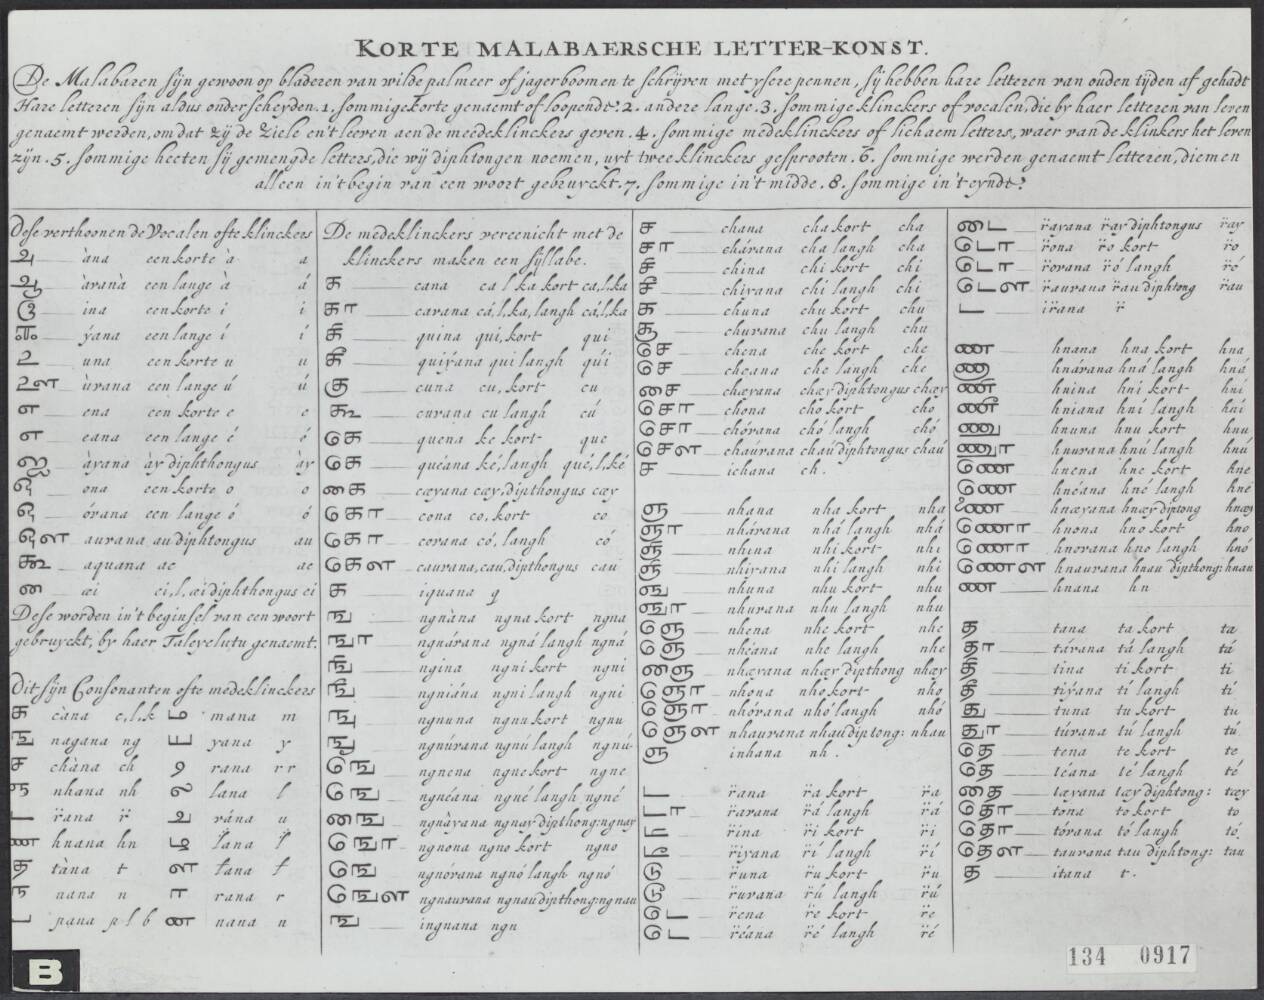 KORTE MALABAERSCHE LETTER-KONST.
De Malabaren sijn gewoon op bladeren van wilde palmeer of jagerboomen te schrijven met ysere pennen, sij hebben hare letteren van ouden tijden af gehadt
Hare letteren sijn aldus onderscheyden. 1, sommige korte genaemt of loopende: 2. andere lange. 3. sommige klinckers of vocalen, die by haer letteren van leven
genaemt werden, om dat zij de Ziele en't leeven aen de meedeklinckers geven. 4. sommige medeklinckers of lichaem letters, waer van de klinkers het leven
zijn. 5. sommige heeten sij gemengde letters, die wij diphtongen noemen, uyt twee klinckers gesprooten. 6. sommige werden genaemt letteren, die men
alleen in't begin van een woort gebruyckt. 7. sommige in't midde. 8. sommige in't eynde:
Dese verthoonen de Vocalen ofte klinckers
அ àna een korte à a
ஆ àvanà een lange à á
இ ina een korte i i
ஈ ýana een lange í í
உ una een korte u u
ஊ ùvana een lange ú ú
எ ena een korte e e
எ eana een lange é é
ஐ àyana ày diphthongus ày
ஒ ona een korte o o
ஒ óvana een lange ó ó
ஔ auvana au diphtongus au
aquana ac ac
æi ci, l, æi diphthongus ci
Dese worden in't beginsel van een woort
gebruyckt, by haer Taleyelutu genaemt.
Dit sijn Consonanten ofte medeklinckers
க càna c, l, k ம mana m
ங nagana ng ய yana y
ச chàna ch ர rana r r
ஞ nhana nh ல lana l
ட r̈ana r̈ வ vána u
ண hnana hn ழ
த tàna t ள
ந nana n ற rana r
ப pana p l b ன nana n
De medeklinckers vereenicht met de
klinckers maken een sijllabe.
க cana ca l ka kort ca, l, ka
கா cavana cá, l, ka, langh cá, l, ka
கி quina qui, kort qui
கீ quiýana qui langh qúi
கு cuna cu, kort cu
கூ cuvana cu langh cú
கெ quena ke kort que
கெ quéana ké, langh qué, l, ké
கை cæyana cæy, dipthongus cæy
கொ cona co, kort co
கொ covana có, langh có
கௌ cauvana, cau, dipthongus cau
க iquana q
ங ngnàna ngna kort ngna
ஙா ngnávana ngná langh ngná
ஙி ngina ngni kort ngni
ஙீ ngniána ngni langh ngni
ஙு ngnuna ngnu kort ngnu
ஙூ ngnúvana ngnú langh ngnú
ஙெ ngnena ngne kort ngne
ஙெ ngnéana ngné langh ngné
ஙை ngnàyana ngnay dipthong: ngnay
ஙொ ngnona ngno kort ngno
ஙொ ngnóvana ngnó langh ngnó
ஙௌ ngnauvana ngnau dipthong: ngnau
ங ingnana ngn
ச chana cha kort cha
சா chávana cha langh cha
சி china chi kort chi
சீ chiyana chi langh chi
சு chuna chu kort chu
சூ chuvana chu langh chu
செ chena che kort che
செ cheana che langh che
சை chæyana chæy diphtongus chæy
சொ chona cho kort cho
சொ chóvana chó langh chó
சௌ chaúvana chaú diphtongus chaú
ச ichana ch.
ஞ nhana nha kort nha
ஞா nhávana nhá langh nhá
ஞி nhina nhi kort nhi
ஞீ nhiyana nhi langh nhi
ஞு nhuna nhu kort nhu
ஞூ nhuvana nhu langh nhu
ஞெ nhena nhe kort nhe
ஞெ nhéana nhe langh nhe
ஞை nhæyana nhæy dipthong nhæy
ஞொ nhona nho kort nho
ஞொ nhóvana nhó langh nhó
ஞௌ nhauvana nhau diptong: nhau
ஞ inhana nh.
ட r̈ana r̈a kort r̈a
டா r̈avana r̈á langh r̈á
டி r̈ina r̈i kort r̈i
டீ r̈iyana r̈í langh r̈í
டு r̈una r̈u kort r̈u
டூ r̈uvana r̈ú langh r̈ú
டெ r̈ena r̈e kort r̈e
டெ r̈éana r̈é langh r̈é
டை r̈ayana r̈ay diphtongus r̈ay
டொ r̈ona r̈o kort r̈o
டொ r̈ovana r̈ó langh r̈ó
டௌ r̈auvana r̈au diphtong r̈au
ட ir̈ana r̈
ண hnana hna kort hna
ணா hnávana hná langh hná
ணி hnina hni kort hni
ணீ hniana hní langh hní
ணு hnuna hnu kort hnu
ணூ hnuvana hnú langh hnú
ணெ hnena hne kort hne
ணெ hnéana hné langh hné
ணை hnæyana hnæy diptong hnæy
ணொ hnona hno kort hno
ணொ hnovana hno langh hnó
ணௌ hnauvana hnau dipthong: hnau
ண hnana hn
த tana ta kort ta
தா távana tá langh tá
தி tina ti kort ti
தீ tiýana tí langh tí
து tuna tu kort tu
தூ túvana tú langh tú
தெ tena te kort te
தெ téana té langh té
தை tæyana tæy diphtong: tæy
தொ tona to kort to
தொ tóvana tó langh tó
தௌ tauvana tau diphtong: tau
த itana t.
B
134 0917